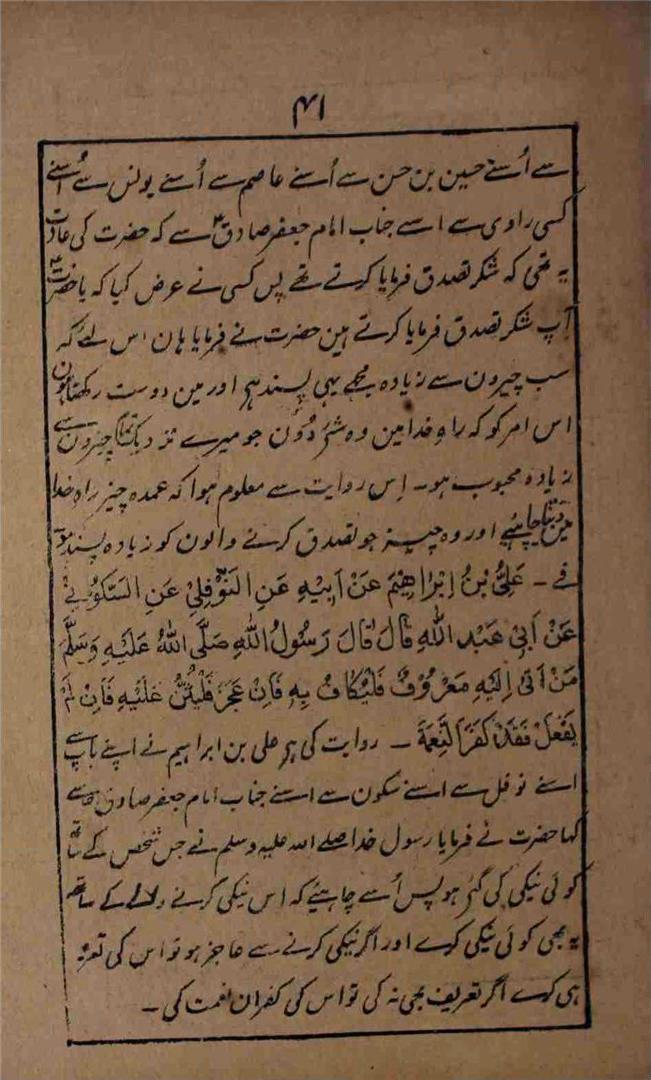 ۴۱
سے اُسنے حسین بن حسن سے اُسنے عاصم سے اُسنے یونس سے اُسنے
کسی راوی سے اسے جناب امام جعفر صادقؑ سے کہ حضرت کی عادت
یہ تھی کہ شکر تصدق فرمایا کرتے تھے پس کسی نے عرض کیا کہ یا حضرتؑ
آپ شکر تصدق فرمایا کرتے ہین حضرت نے فرمایا ہان اس لئے کہ
سب چیرون سے زیادہ مجھے یہی پسند ہی اور مین دوست رکھتا ہون
اس امر کو کہ راہِ خدا مین وہ شئے دُون جو میرے نزدیک تمام چیزون سے
زیادہ محبوب ہو۔ اِس روایت سے معلوم ہوا کہ عمدہ چیز راہِ خدا
مین دینا چاہیئے اور وہ چیز جو تصدق کرنے والون کو زیادہ پسند ہو
فے ۔ عَلِیُّ بْنُ اِبْرَاهِیْمَ عَنْ اَبِیْهِ عَنِ النَّوْفَلِیْ عَنِ السَّکُوْنِیْ
عَنْ اَبِیْ عَبْدِ اللّٰهِ قَالَ قَالَ رَسُوْلُ اللّٰهِ صَلَّی اللّٰهُ عَلَیْهِ وَسَلَّمَ
مَنْ اَتٰی اِلَیْهِ مَعْرُوْفٌ فَلْیُکَافِ بِهٖ فَاِنْ عَجَزَ فَلْیُثْنِ عَلَیْهِ فَاِنْ لَمْ
یَفْعَلْ فَقَدْ کَفَرَ النِّعْمَةَ ۔ روایت کی ہر علی بن ابراہیم نے اپنے باپ سے
اسنے نوفل سے اسنے سکون سے اسنے جناب امام جعفر صادقؑ سے
کہا حضرت نے فرمایا رسول خدا صلے اللہ علیہ وسلم نے جس شخص کے ساتھ
کوئی نیکی کی گئی ہو پس اُسے چاہیئے کہ اس نیکی کرنے والے کے ساتھ
یہ بھی کوئی نیکی کرے اور اگر نیکی کرنے سے عاجز ہو تو اس کی تعریف
ہی کرے اگر تعریف بھی نہ کی تو اس کی کفران نعمت کی ۔